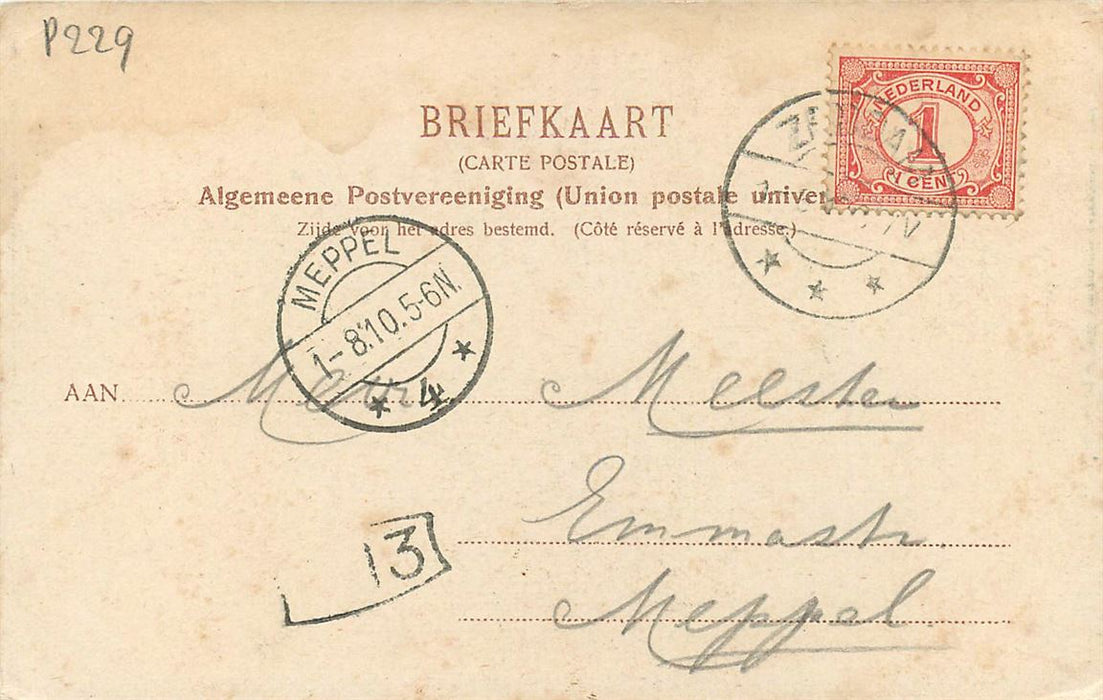 P229
NEDERLAND
1
1 CENT
BRIEFKAART
(CARTE POSTALE)
Algemeene Postvereeniging (Union postale univer
Zijde voor het adres bestemd. (Côté réservé à l'adresse.)
MEPPEL
1-8.10.5-6N.
4
AAN Meester
Emmastr.
Meppel.
13